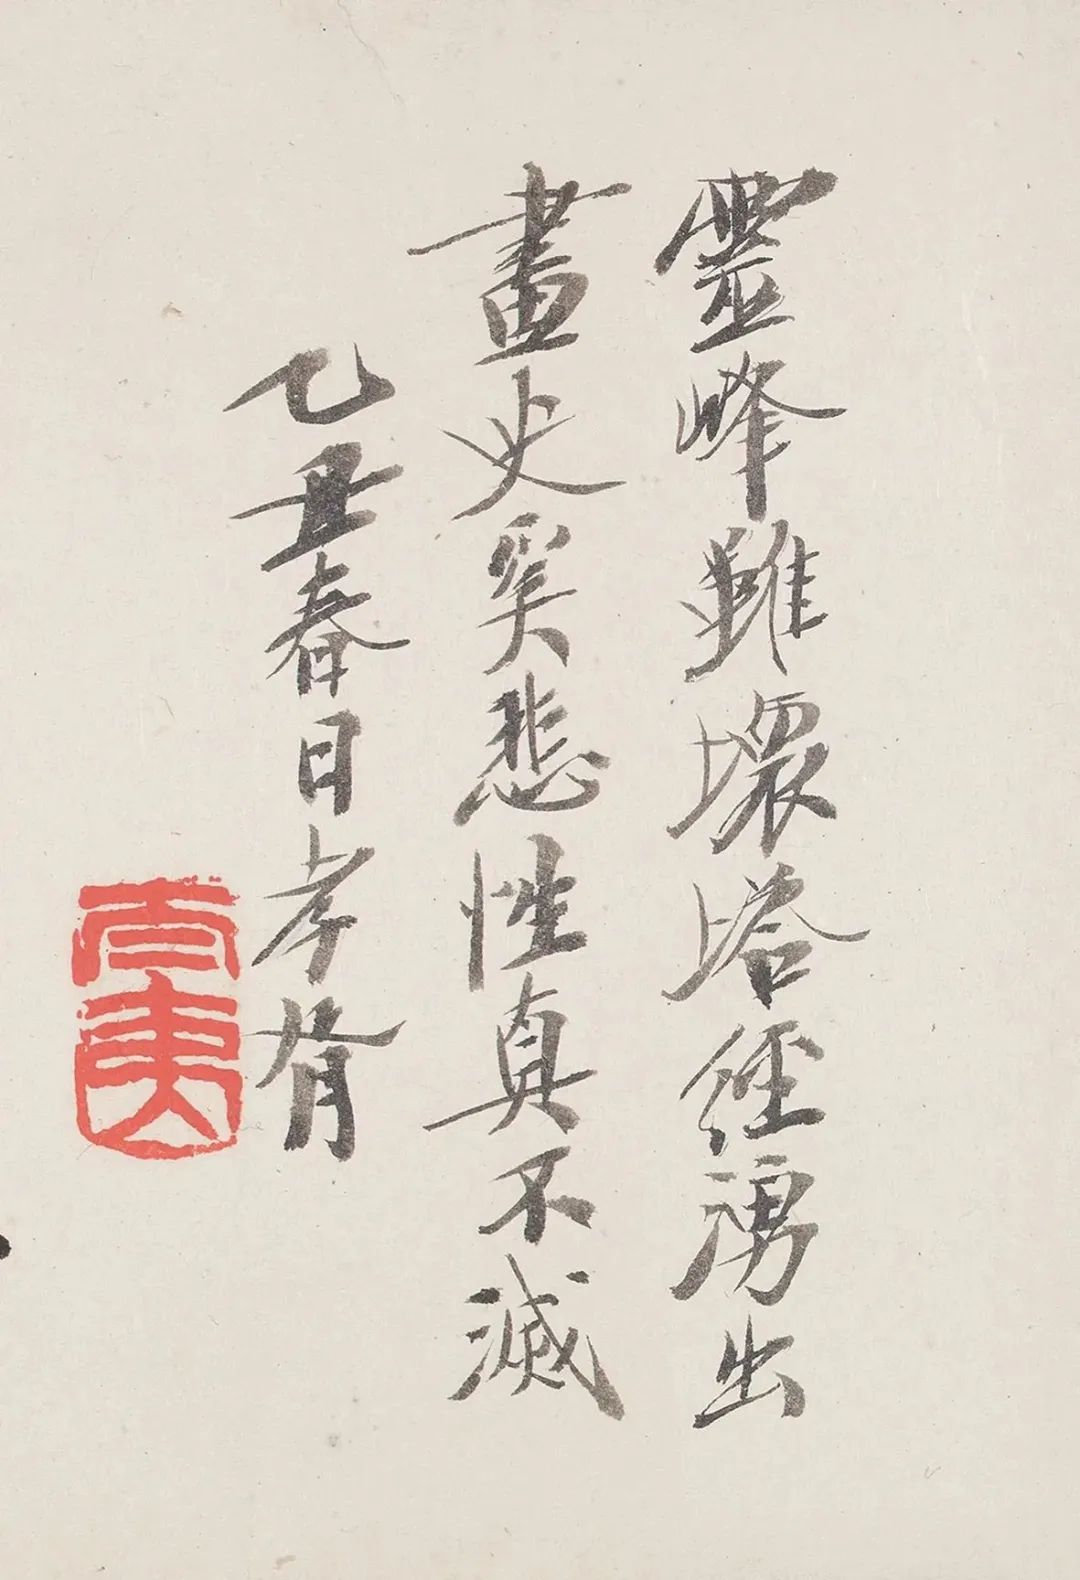 靈峰雖壞塔經湧出
畫史奚悲性真不滅
乙丑春日孝胥
太夷